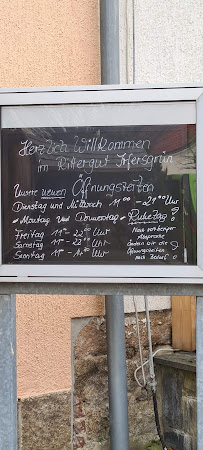 Herzlich Willkommen
im Rittergut Treffersgrün
Unsere neuen Öffnungszeiten
Dienstag und Mittwoch 11⁰⁰ - 21⁰⁰ Uhr
• Montag und Donnerstag • Ruhetag
Freitag 11⁰⁰ - 22⁰⁰ Uhr
Samstag 11⁰⁰ - 22⁰⁰ Uhr
Sonntag 11⁰⁰ - Uhr
Nach vorheriger
Absprache
ändern wir die
Öffnungszeiten
nach Bedarf